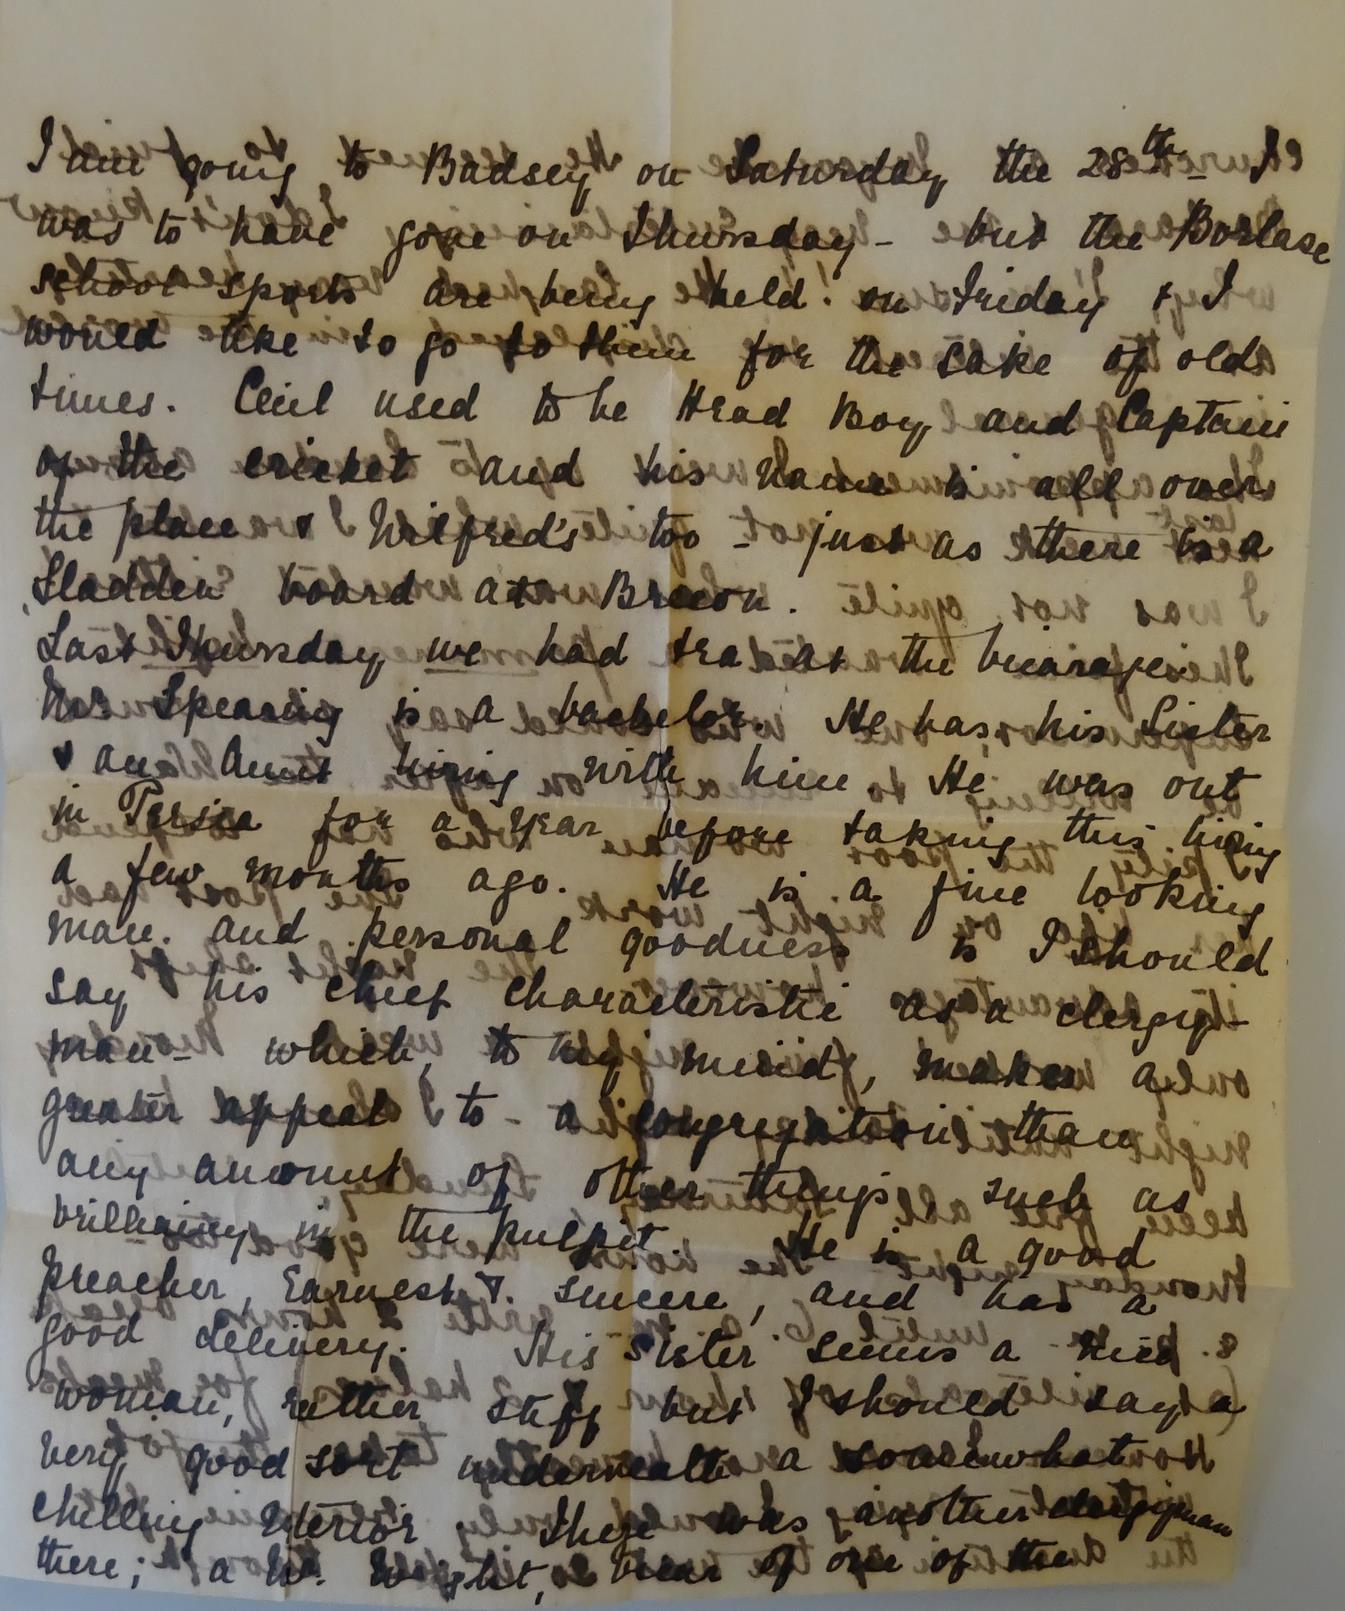 I am going to Badsey on Saturday the 28th - I
was to have gone on Thursday - but the Borlase
school sports are being held on Friday & I
would like to go to them for the sake of old
times. Cecil used to be Head Boy and Captain
of the cricket and his name is all over
the place & Wilfred's too - just as there is a
Sladden board at Brecon.
Last Thursday we had tea at the Vicarage.
Mr Spearing is a bachelor. He has his Sister
& an Aunt living with him He was out
in Persia for a year before taking this living
a few months ago. He is a fine looking
man. and personal goodness is I should
say his chief characteristic as a clergy-
man - which, to my mind, makes a
greater appeal to - a congregation than
any amount of other things such as
brilliancy in the pulpit. He is a good
preacher, Earnest & sincere, and has a
good delivery. His Sister seems a nice
woman, rather stiff but I should say a
very good sort underneath a somewhat
chilling exterior There was another clergyman
there; a W. Wright, Vicar of one of the